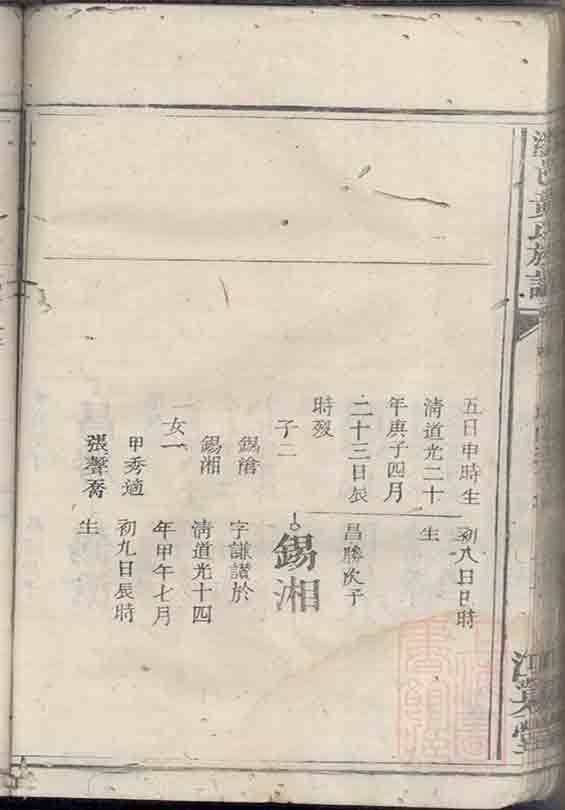 黃氏族譜
江夏堂
五日申時生
清道光二十
年庚子四月
二十三日辰
時歿
子二
錫滄
錫湘
女一
甲秀適
張聲喬
初八日巳時
生
昌勝次子
錫湘
字謙讃於
清道光十四
年甲午七月
初九日辰時
生